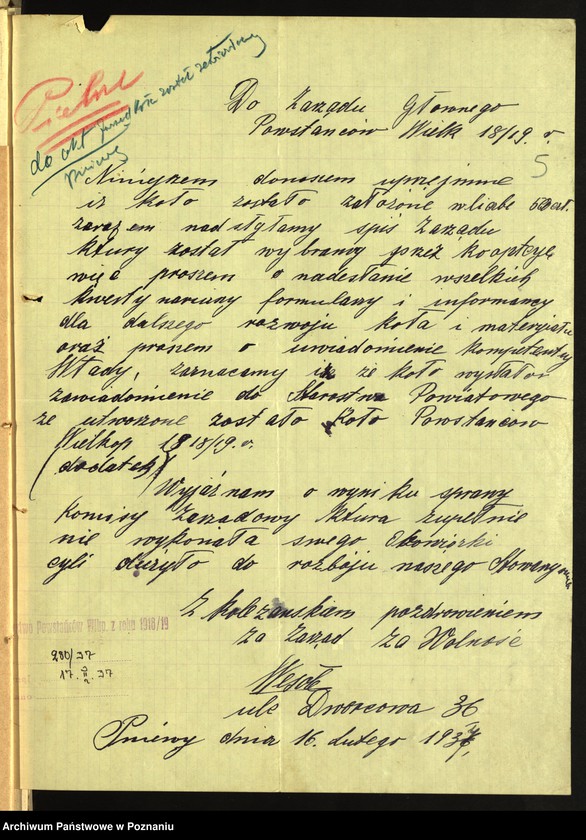 Pilne
do akt
Pniewy
Do Zarządu Głownego
Powstańców Wielk 18/19. r.
5
Niniejszem donoszem uprzejmnie
iz koło zostało założone w liczbe
zarazem nadsyłamy spis Zarządu
ktury został wybrany przéz kooptcye
więc proszem o nadesłanie wszelkich
kwestynariuny formulany i informancy
dla dalszego rozwoju koła i materyiału
oraz prosem o uwiadomienie kompetentny
Włady, zaznacamy iz ze koło wysłało
zawiadomienie do Starostwa Powiatowego
ze utworzone zostało Koło Powstańcow
Wielkop 18/19. r.
(dodatek)
Wyjáznam o wyniku sprawy
Komisy Zarzadowy ktura zupełnie
nie wykonała swego
cyli dużyło do rozbóju naszego
Z kolezanskiem pozdrowieniem
za Zarząd Za Wolnosc
Wesoł
ulc Dworcowa 36
Pniewy dnia 16. lutego 1937.
Powstańców Wlkp. z roku 1918/19
200/37
17. II. 37
Archiwum Państwowe w Poznaniu